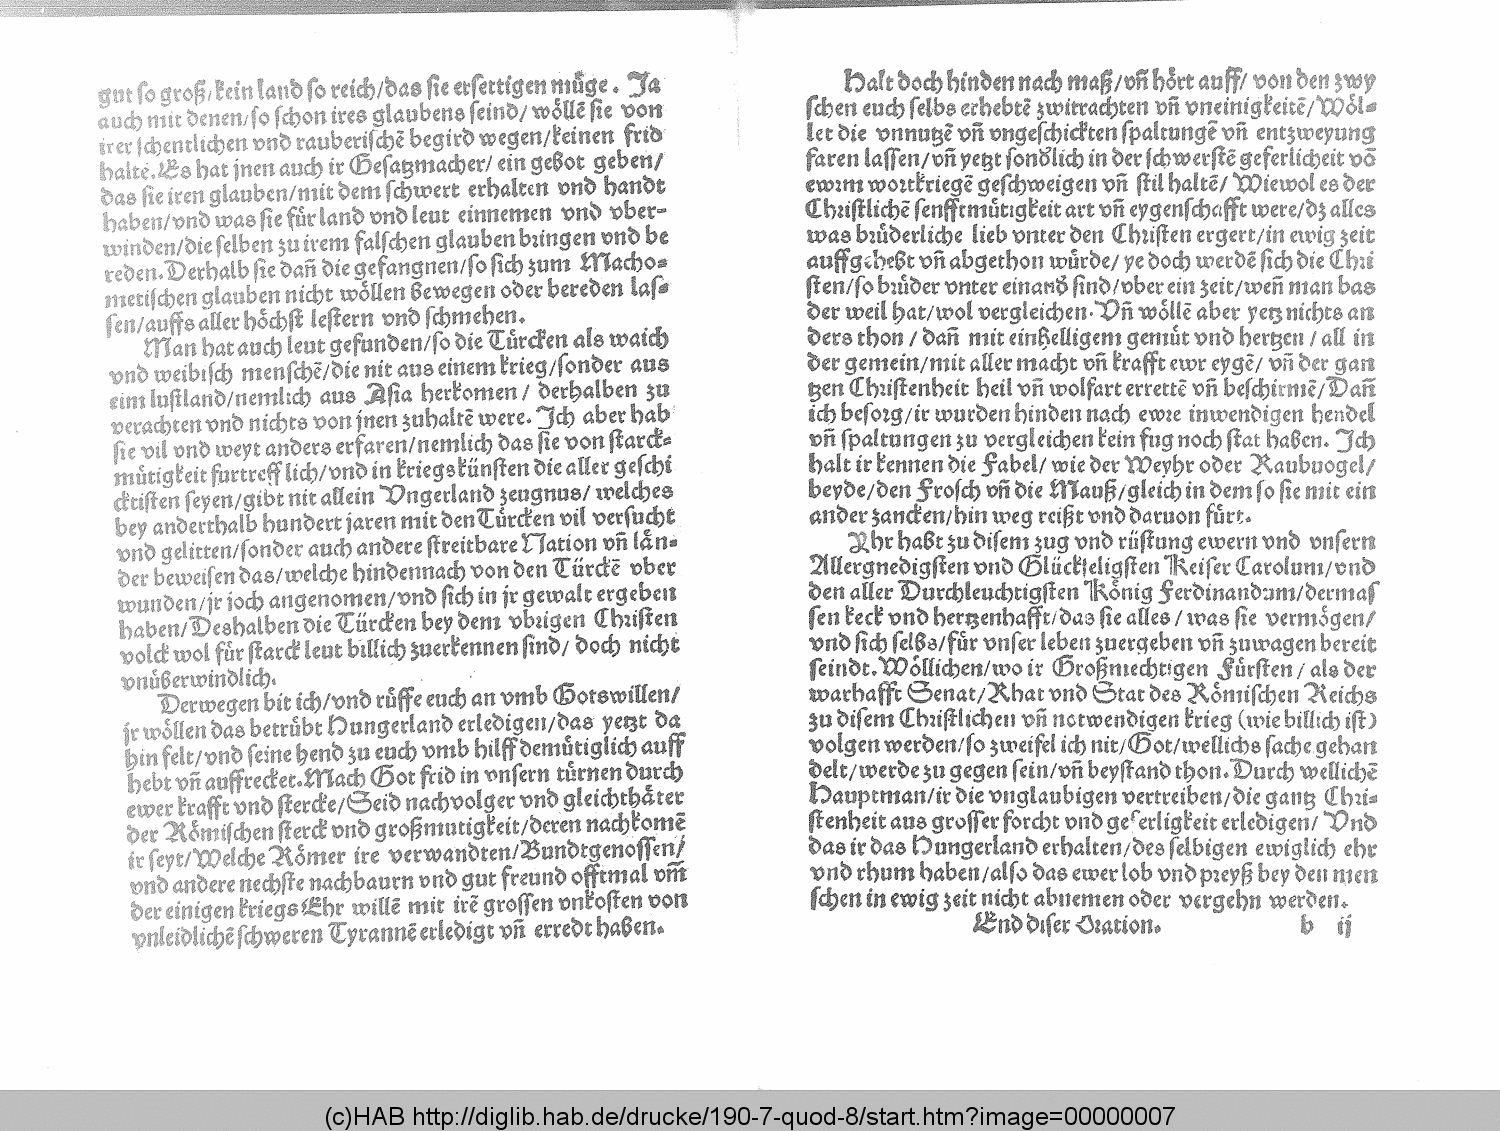 gut so groß/kein land so reich/das sie ersettigen müge. Ja
auch mit denen/so schon ires glaubens seind/wöllē sie von
irer schentlichen vnd rauberischē begird wegen/keinen frid
haltē. Es hat jnen auch ir Gesatzmacher/ ein gebot geben/
das sie iren glauben/mit dem schwert erhalten vnd handt
haben/vnd was sie für land vnd leut einnemen vnd vber-
winden/die selben zu irem falschen glauben bringen vnd be
reden. Derhalb sie dañ die gefangnen/so sich zum Macho-
metischen glauben nicht wöllen bewegen oder bereden las-
sen/auffs aller höchst lestern vnd schmehen.
Man hat auch leut gefunden/so die Türcken als waich
vnd weibisch menschē/die nit aus einem krieg/sonder aus
eim lustland/nemlich aus Asia herkomen/ derhalben zu
verachten vnd nichts von jnen zuhaltē were. Ich aber hab
sie vil vnd weyt anders erfaren/nemlich das sie von starck-
mütigkeit furtrefflich/vnd in kriegskünsten die aller geschi
cktisten seyen/gibt nit allein Vngerland zeugnus/welches
bey anderthalb hundert jaren mit den Türcken vil versucht
vnd gelitten/sonder auch andere streitbare Nation vñ län-
der beweisen das/welche hindennach von den Türckē vber
wunden/jr joch angenomen/vnd sich in jr gewalt ergeben
haben/Deshalben die Türcken bey dem vbrigen Christen
volck wol für starck leut billich zuerkennen sind/ doch nicht
vnüberwindlich.
Derwegen bit ich/vnd rüffe euch an vmb Gotswillen/
jr wöllen das betrübt Hungerland erledigen/das yetzt da
hin felt/vnd seine hend zu euch vmb hilff demütiglich auff
hebt vñ auffrecket. Mach Got frid in vnsern türnen durch
ewer krafft vnd stercke/Seid nachvolger vnd gleichthäter
der Römischen sterck vnd großmutigkeit/deren nachkomē
ir seyt/Welche Römer ire verwandten/Bundtgenossen/
vnd andere nechste nachbaurn vnd gut freund offtmal vm̄
der einigen kriegs Ehr willē mit irē grossen vnkosten von
vnleidlichē schweren Tyrannē erledigt vñ erredt haben.
Halt doch hinden nach maß/vñ hört auff/ von den zwy
schen euch selbs erhebtē zwitrachten vñ vneinigkeitē/Wöl-
let die vnnutzē vñ vngeschickten spaltungē vñ entzweyung
faren lassen/vñ yetzt sonđlich in der schwerstē geferlicheit võ
ewrm wortkriegē geschweigen vñ stil haltē/ Wiewol es der
Christlichē senfftmütigkeit art vñ eygenschafft were/dz alles
was brüderliche lieb vnter den Christen ergert/in ewig zeit
auffgehebt vñ abgethon würde/ ye doch werdē sich die Chri
sten/so brüder vnter einanđ sind/vber ein zeit/weñ man bas
der weil hat/wol vergleichen. Vñ wöllē aber yetz nichts an
ders thon / dañ mit einhelligem gemüt vnd hertzen / all in
der gemein/mit aller macht vñ krafft ewr eygē/ vñ der gan
tzen Christenheit heil vñ wolfart errettē vñ beschirmē/Dañ
ich besorg/ir wurden hinden nach ewre inwendigen hendel
vñ spaltungen zu vergleichen kein fug noch stat haben. Ich
halt ir kennen die Fabel/ wie der Weyhr oder Raubuogel/
beyde/den Frosch vñ die Mauß/gleich in dem so sie mit ein
ander zancken/hin weg reißt vnd daruon fürt.
Ihr habt zu disem zug vnd rüstung ewern vnd vnsern
Allergnedigsten vnd Glückseligsten Keiser Carolum/vnd
den aller Durchleuchtigsten König Ferdinandum/dermas
sen keck vnd hertzenhafft/das sie alles / was sie vermögen/
vnd sich selbs/für vnser leben zuergeben vñ zuwagen bereit
seindt. Wöllichen/wo ir Großmechtigen Fürsten / als der
warhafft Senat/Rhat vnd Stat des Römischen Reichs
zu disem Christlichen vñ notwendigen krieg (wie billich ist)
volgen werden/so zweifel ich nit/Got/wellichs sache gehan
delt/werde zu gegen sein/vñ beystand thon. Durch wellichē
Hauptman/ir die vnglaubigen vertreiben/die gantz Chri-
stenheit aus grosser forcht vnd geferligkeit erledigen/ Vnd
das ir das Hungerland erhalten/des selbigen ewiglich ehr
vnd rhum haben/also das ewer lob vnd preyß bey den men
schen in ewig zeit nicht abnemen oder vergehn werden.
End diser Oration.
b ij
(c)HAB http://diglib.hab.de/drucke/190-7-quod-8/start.htm?image=00000007